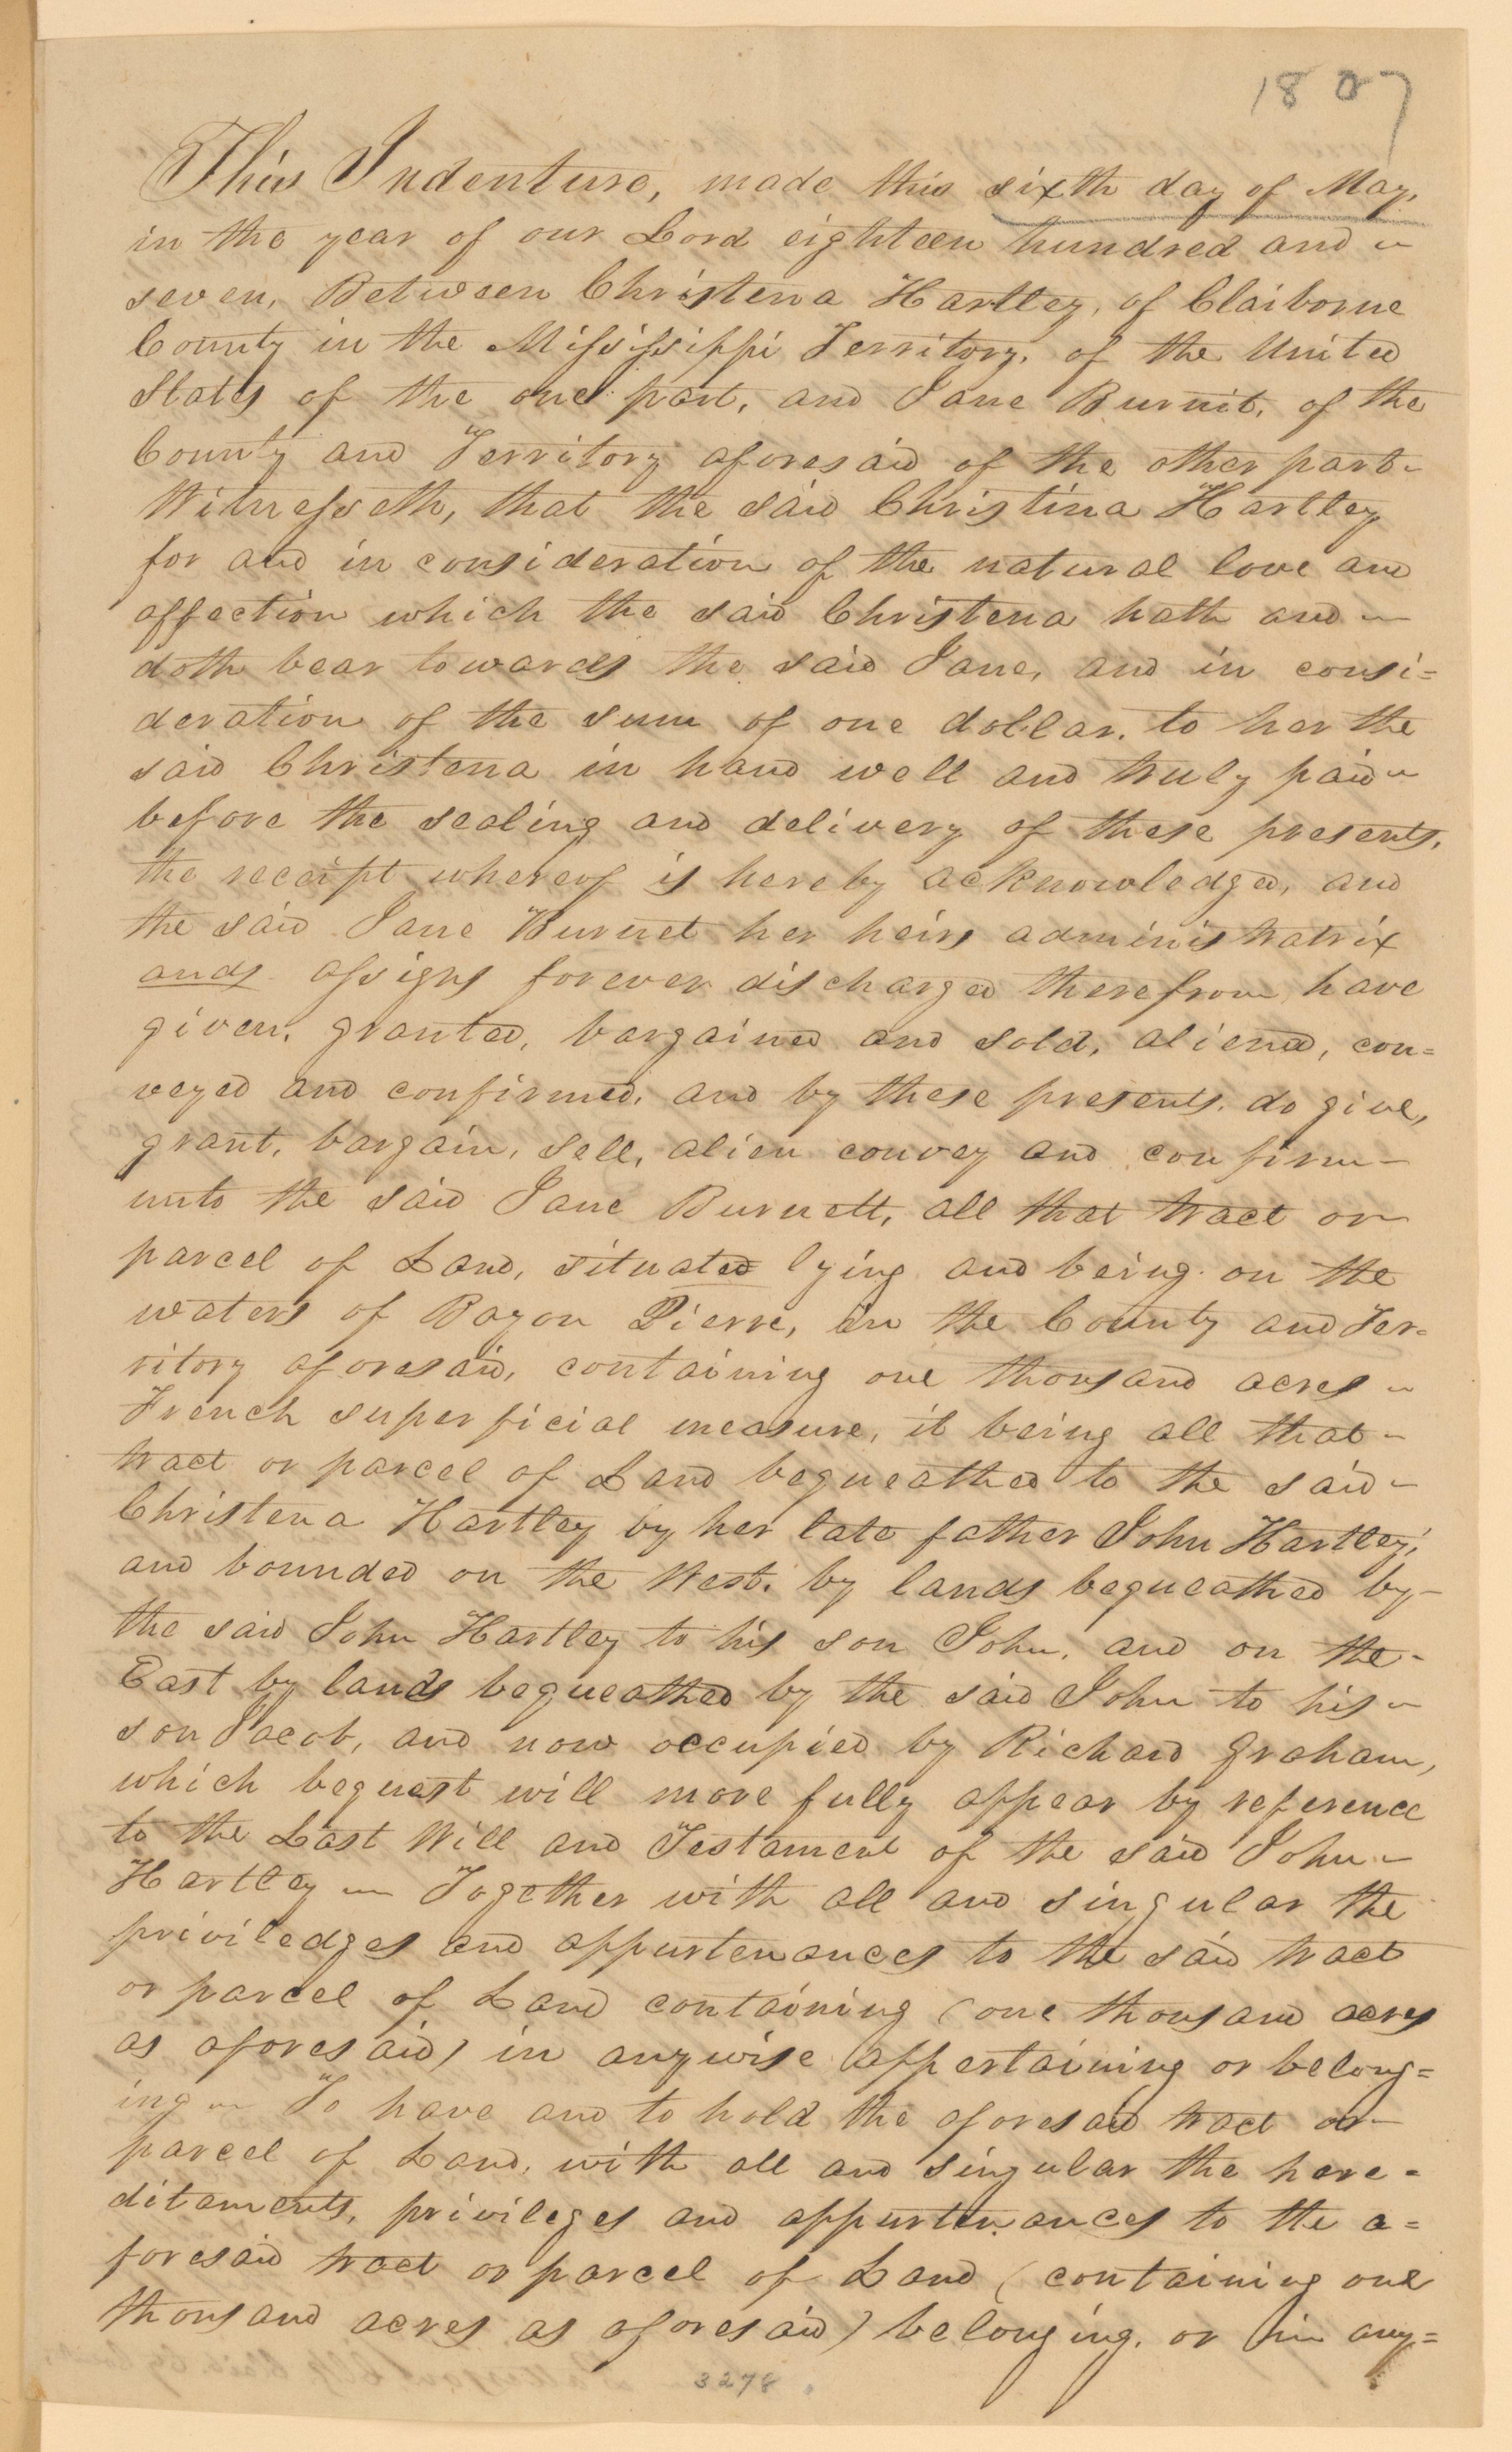 1807
This Indenture, made this sixth day of May,
in the year of our Lord eighteen hundred and ~
seven, Between Christena Hartley, of Claiborne
County in the Mississippi Territory, of the United
States of the one part, and Jane Burnit, of the
County and Territory aforesaid of the other part ~
Witnesseth, that the said Christina Hartley
for and in consideration of the natural love and
affection which the said Christena hath and ~
doth bear towards the said Jane, and in consi=
deration of the sum of one dollar, to her the
said Christena in hand well and truly paid ~
before the sealing and delivery of these presents,
the receipt whereof is hereby acknowledged, and
the said Jane Burnet her heirs administratrix
ands assigns forever discharged therefrom, have
given, granted, bargained and sold, aliend, con=
veyed and confirmed, and by these presents, do give,
grant, bargain, sell, alien convey and confirm ~
unto the said Jane Burnett, all that tract or
parcel of Land, situated lying and being on the
waters of Bayou Pierre, in the County and Ter=
ritory aforesaid, containing one thousand acres ~
French superficial measure, it being all that ~
tract or parcel of Land bequeathed to the said ~
Christena Hartley by her late father John Hartley,
and bounded on the West, by lands bequeathed by ~
the said John Hartley to his son John, and on the ~
East by lands bequeathed by the said John to his ~
son Jacob, and now occupied by Richard Graham,
which bequest will more fully appear by reference
to the Last Will and Testament of the said John ~
Hartley ~ Together with all and singular the
priviledges and appurtenances to the said tract
or parcel of Land containing (one thousand acres
as aforesaid) in anywise appertaining or belong=
ing ~ To have and to hold the aforesaid tract or ~
parcel of Land, with all and singular the here=
ditaments, privileges and appurtenances to the a=
foresaid tract or parcel of Land (containing one
thousand acres as aforesaid) belonging, or in any=
3278